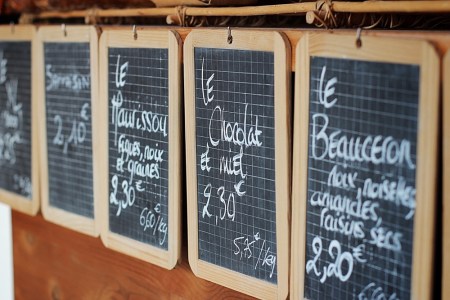 Sarrasin
2,10 €
Le
Maurissou
figues, noix
et graines
2,30 €
6,00 €/kg
Le
Chocolat
et miel
2,30 €
5,75 €/kg
Le
Beauceron
noix, noisettes,
amandes,
raisins secs
2,20 €